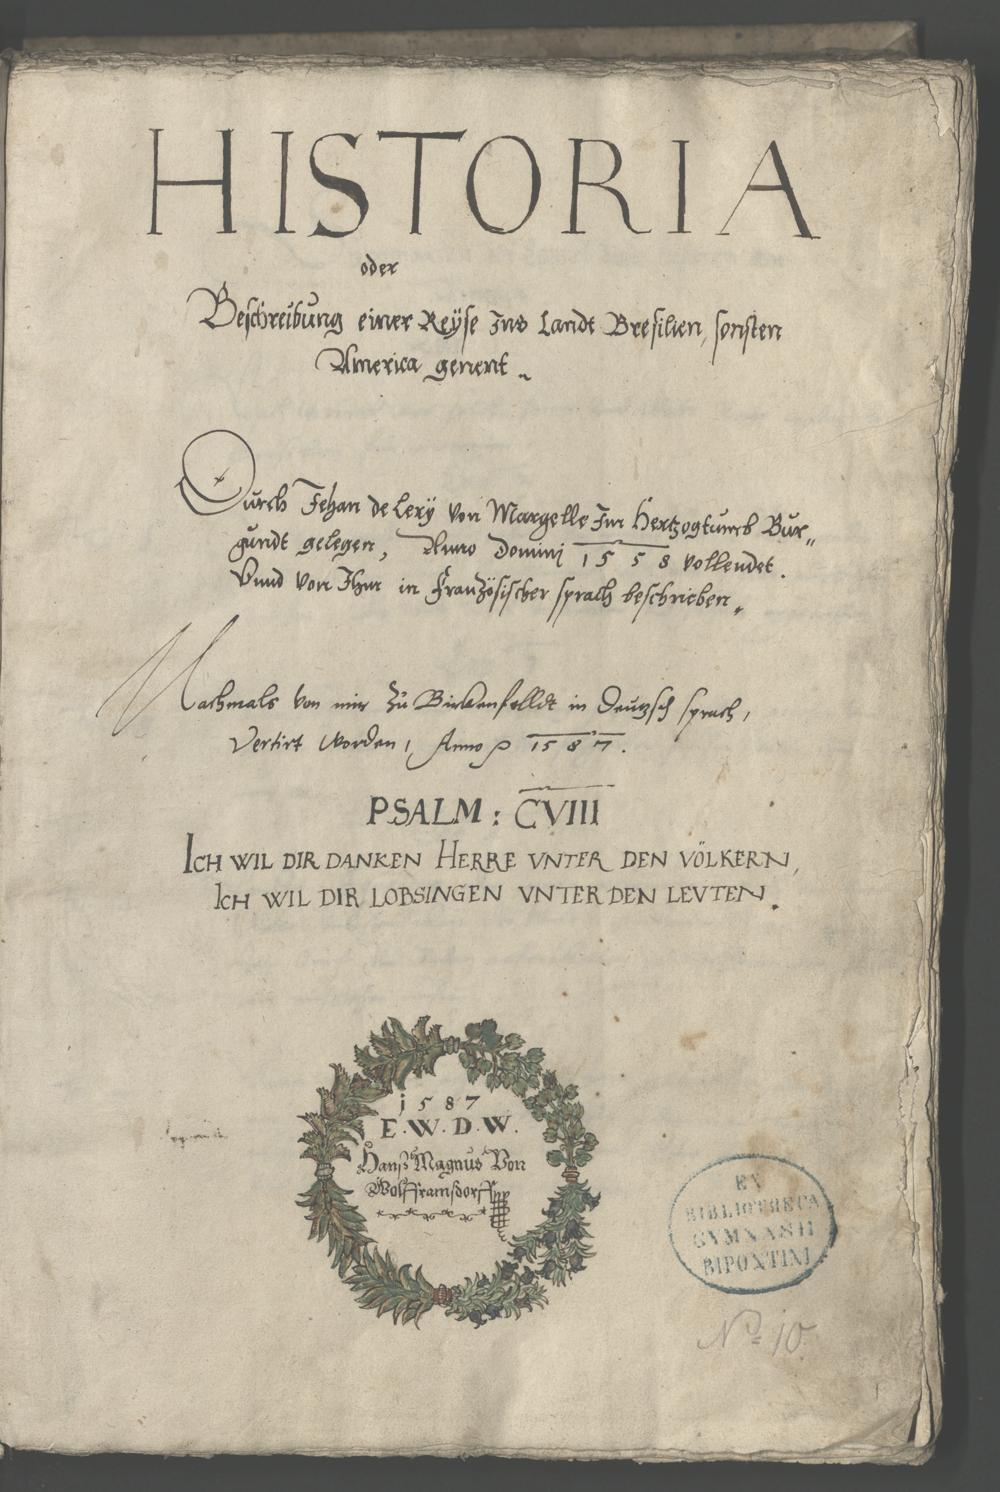 HISTORIA
oder
Beschreibung einer Reÿse Ins Landt Bresilien, sonsten
America genent
Durch Jehan de Lerÿ von Margelle Im Hertzogtumb Bur„
gundt gelegen, Anno Domini 1558 vollendet.
Vnnd von Ihm in Französischer sprach beschrieben„
Nachmals von mir zu Birkenfelldt in Deutzsch sprach,
Vertirt worden, Anno 1587.
PSALM: CVIII
ICH WIL DIR DANKEN HERRE VNTER DEN VÖLKERN,
ICH WIL DIR LOBSINGEN VNTER DEN LEVTEN.
1587
E.W.D.W.
Hanß Magnus Von
Wolfframsdorff
EX
BIBLIOTHECA
GYMNASII
BIPONTINI
No 10